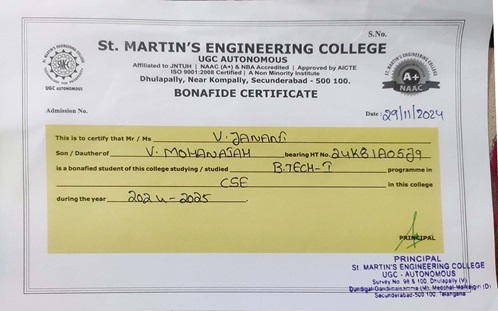 S.No.
St. MARTIN'S ENGINEERING COLLEGE
UGC AUTONOMOUS
Affiliated to JNTUH | NAAC (A+) & NBA Accredited | Approved by AICTE
ISO 9001:2008 Certified | A Non Minority Institute
Dhulapally, Near Kompally, Secunderabad - 500 100.
UGC AUTONOMOUS
A+
NAAC
BONAFIDE CERTIFICATE
Admission No.
Date : 29/11/2024
This is to certify that Mr / Ms V. JANANI
Son / Dauther of V. MOHANAIAH bearing HT No. 24K81A05J9
is a bonafied student of this college studying / studied B.TECH-I programme in
CSE in this college
during the year 2024-2025
PRINCIPAL
PRINCIPAL
St MARTIN'S ENGINEERING COLLEGE
UGC - AUTONOMOUS
Survey No. 98 & 100, Dhulapally (V)
Secunderabad-500 100, Telangana